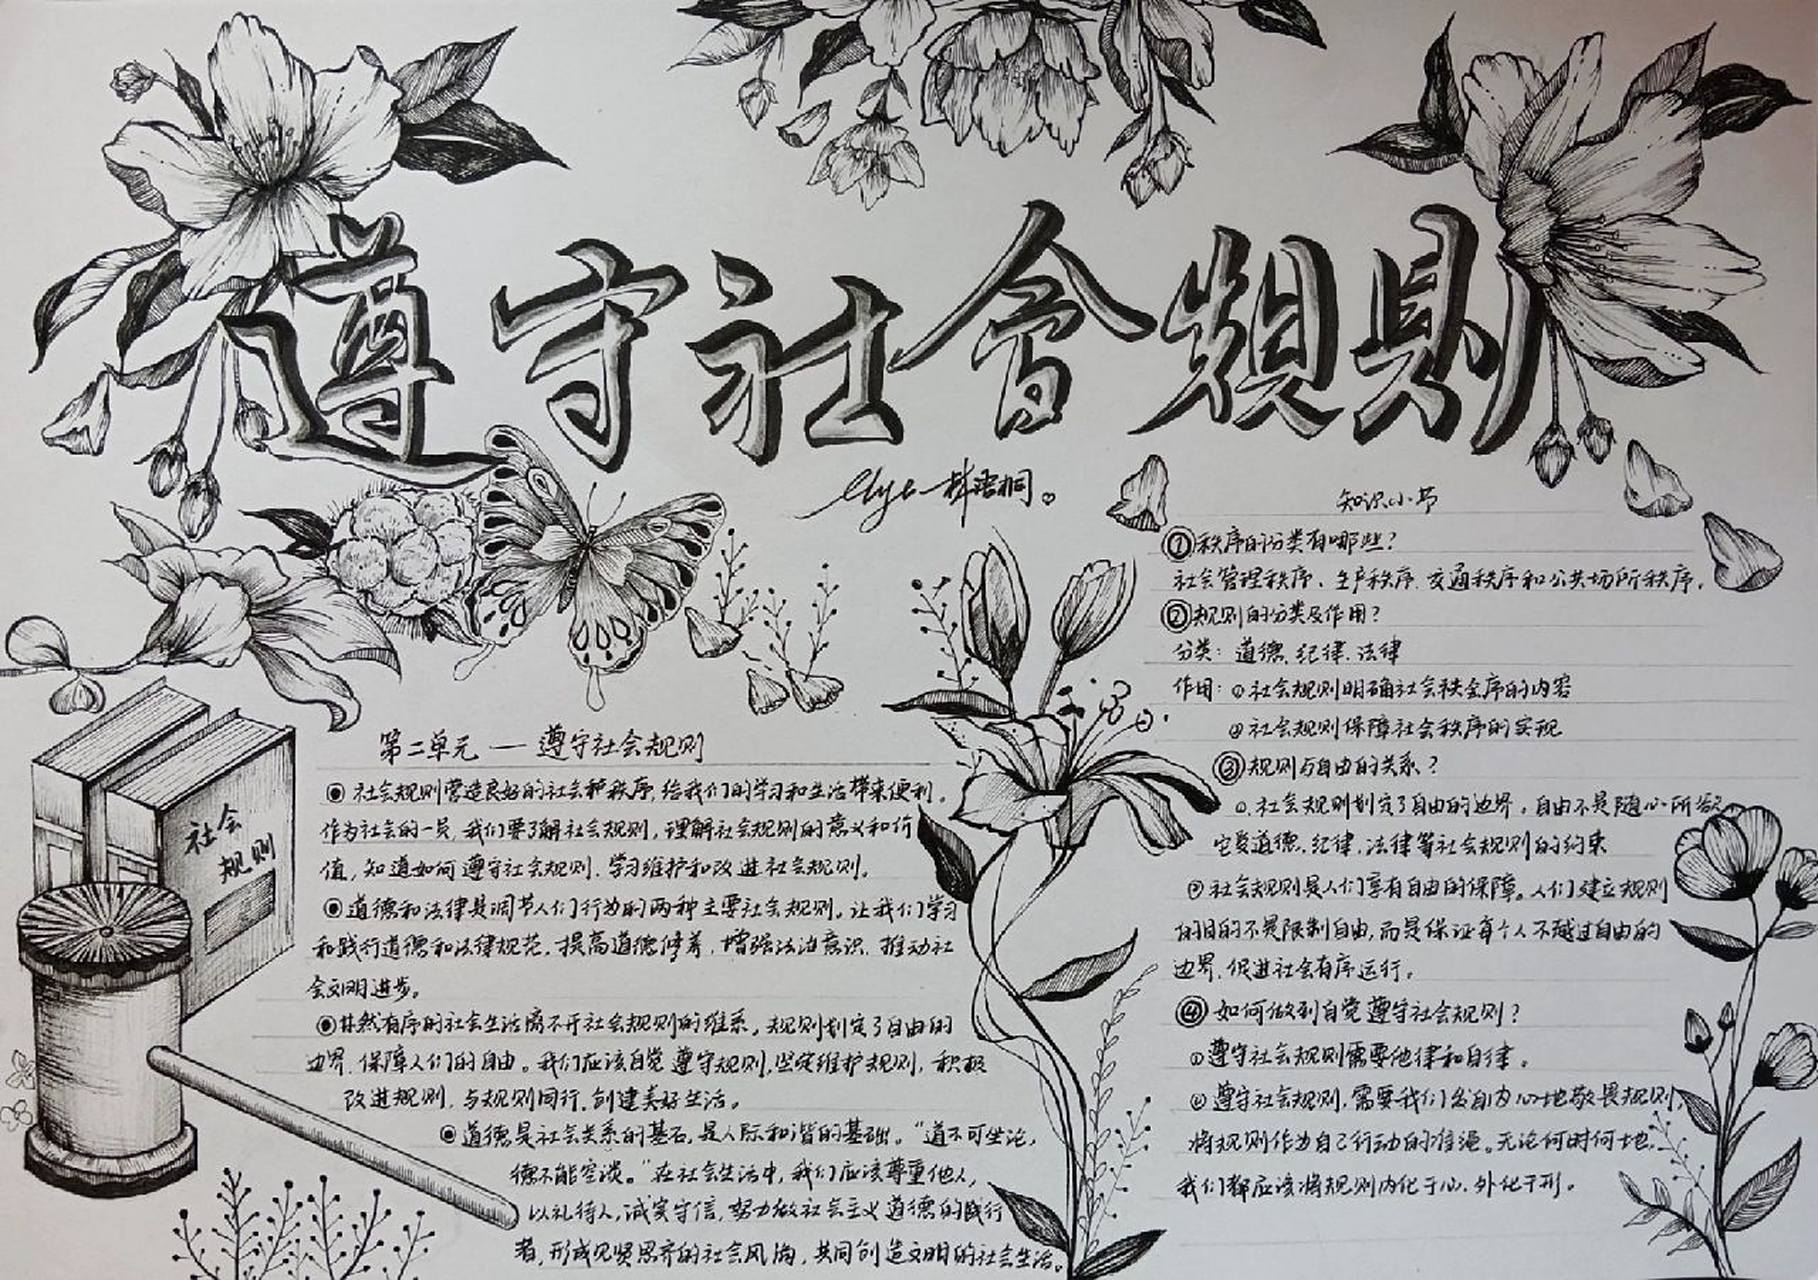 遵守社会规则
林梧桐
社会
规则
第二单元 — 遵守社会规则
社会规则营造良好的社会种秩序,给我们的学习和生活带来便利。
作为社会的一员,我们要了解社会规则,理解社会规则的意义和价
值,知道如何遵守社会规则,学习维护和改进社会规则。
道德和法律是调节人们行为的两种主要社会规则。让我们学习
和践行道德和法律规范,提高道德修养,增强法治意识,推动社
会文明进步。
井然有序的社会生活离不开社会规则的维系。规则划定了自由的
边界,保障人们的自由。我们应该自觉遵守规则,坚定维护规则,积极
改进规则,与规则同行,创建美好生活。
道德是社会关系的基石,是人际和谐的基础。“道不可坐论,
德不能空谈。”在社会生活中,我们应该尊重他人,
以礼待人,诚实守信,努力做社会主义道德的践行
者,形成见贤思齐的社会风尚,共同创造文明的社会生活。
知识小书
①秩序的分类有哪些?
社会管理秩序、生产秩序、交通秩序和公共场所秩序。
②规则的分类及作用?
分类:道德、纪律、法律
作用:①社会规则明确社会秩会序的内容
②社会规则保障社会秩序的实现
③规则与自由的关系?
①社会规则划定了自由的边界。自由不是随心所欲
它受道德、纪律、法律等社会规则的约束
②社会规则是人们享有自由的保障。人们建立规则
的目的不是限制自由,而是保证每个人不越过自由的
边界,促进社会有序运行。
④如何做到自觉遵守社会规则?
①遵守社会规则需要他律和自律。
②遵守社会规则,需要我们发自内心地敬畏规则,
将规则作为自己行动的准绳。无论何时何地,
我们都应该将规则内化于心、外化于形。